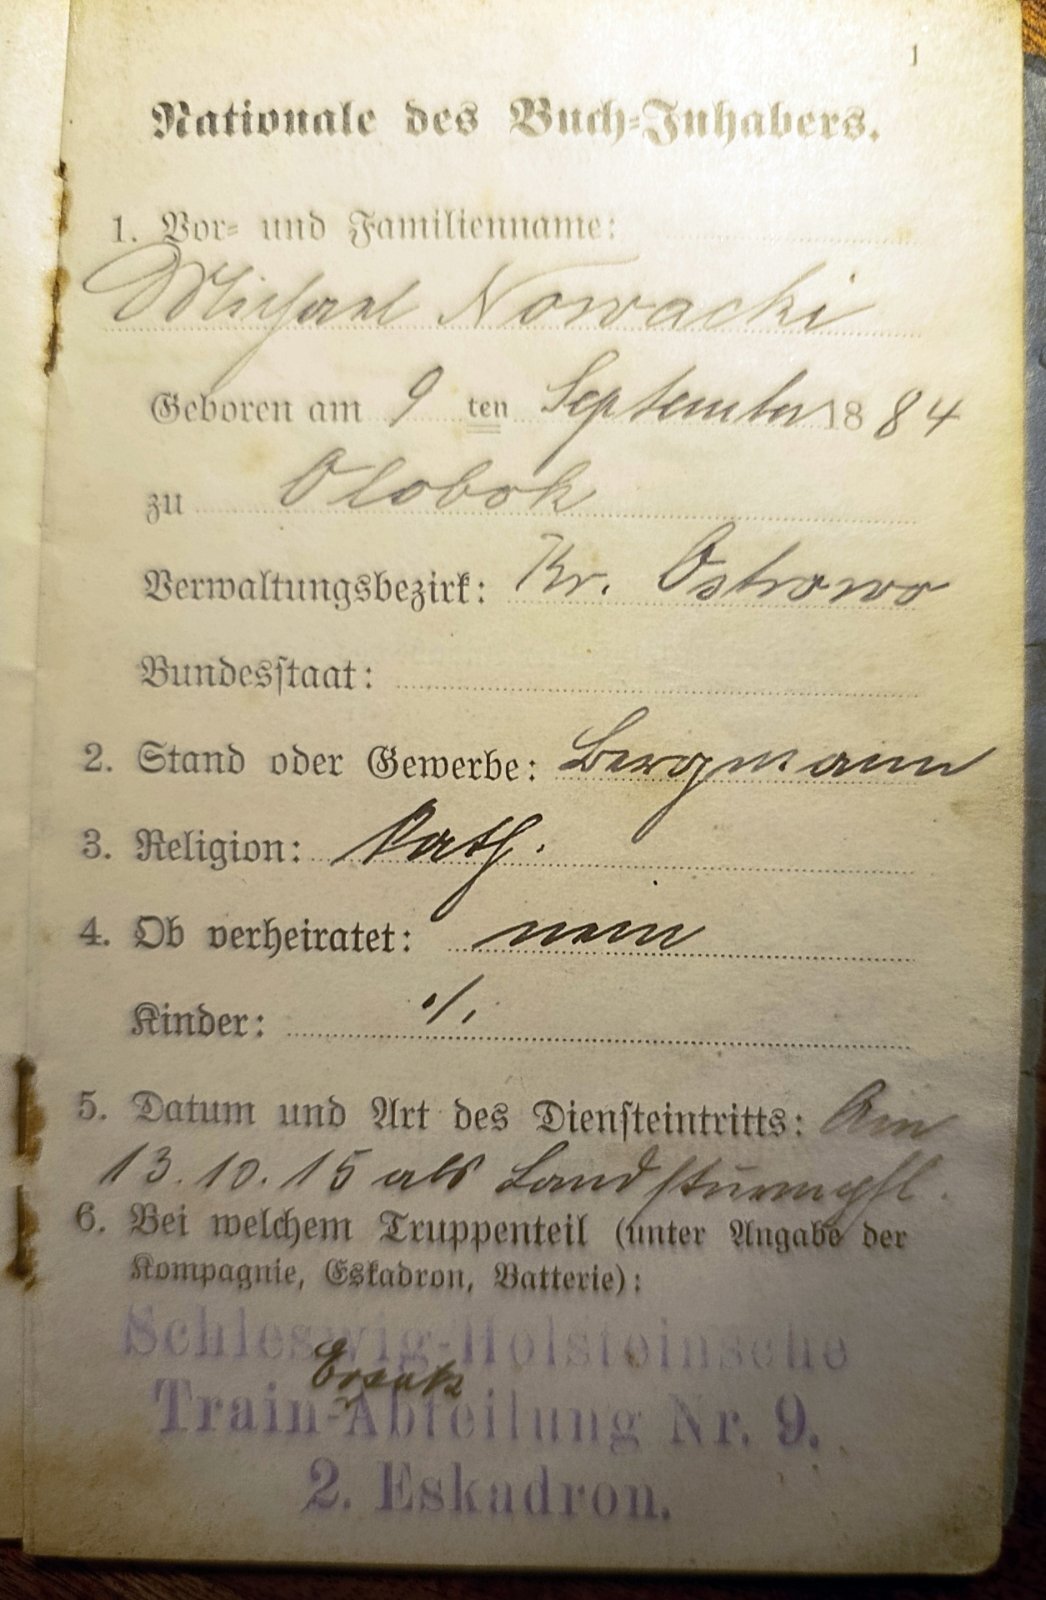 1
Nationale des Buch-Inhabers.
1. Vor- und Familienname:
Michael Nowacki
Geboren am 9 ten September 1884
zu Olobok
Verwaltungsbezirk: Kr. Ostrowo
Bundesstaat:
2. Stand oder Gewerbe: Bergmann
3. Religion: Kath.
4. Ob verheiratet: nein
Kinder: ./.
5. Datum und Art des Diensteintritts: Am
13.10.15 als Landsturmpfl.
6. Bei welchem Truppenteil (unter Angabe der
Kompagnie, Eskadron, Batterie):
Schleswig-Holsteinsche
Ersatz
Train-Abteilung Nr. 9.
2. Eskadron.